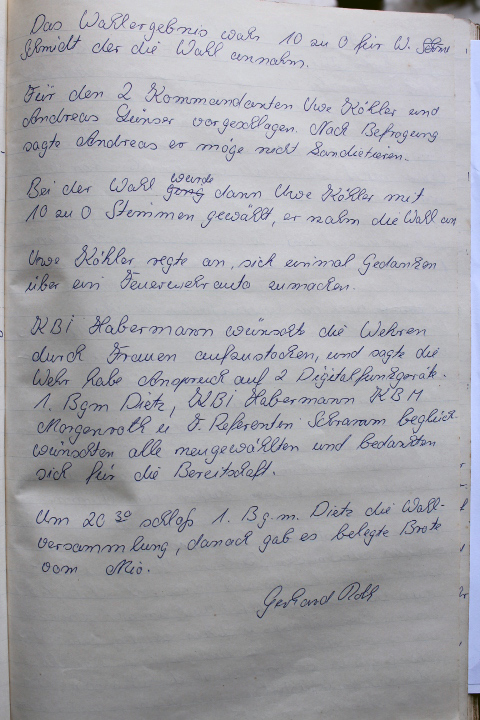 Das Wahlergebnis wahr 10 zu 0 für W. Schm
Schmidt der die Wahl annahm.
Für den 2 Kommandanten Uwe Köhler und
Andreas vorgeschlagen. Nach Befragung
sagte Andreas er möge nicht Kandietieren.
Bei der Wahl ging wurde dann Uwe Köhler mit
10 zu 0 Stimmen gewählt, er nahm die Wahl an
Uwe Köhler regte an, sich einmal Gedanken
über ein Feuerwehrauto zumachen.
KBI Habermann wünschte die Wehren
durch Frauen aufzustocken, und sagte die
Wehr habe Anspruch auf 2 Digitalfunkgeräte.
1. Bgm Dietz, KBI Habermann KBM
Morgenroth u F. Referenten Schramm beglück-
wünschten alle neugewählten und bedankten
sich für die Bereitschaft.
Um 20 30 schloß 1. Bg.m. Dietz die Wahl-
versammlung, danach gab es belegte Brote
vom
Gerhard